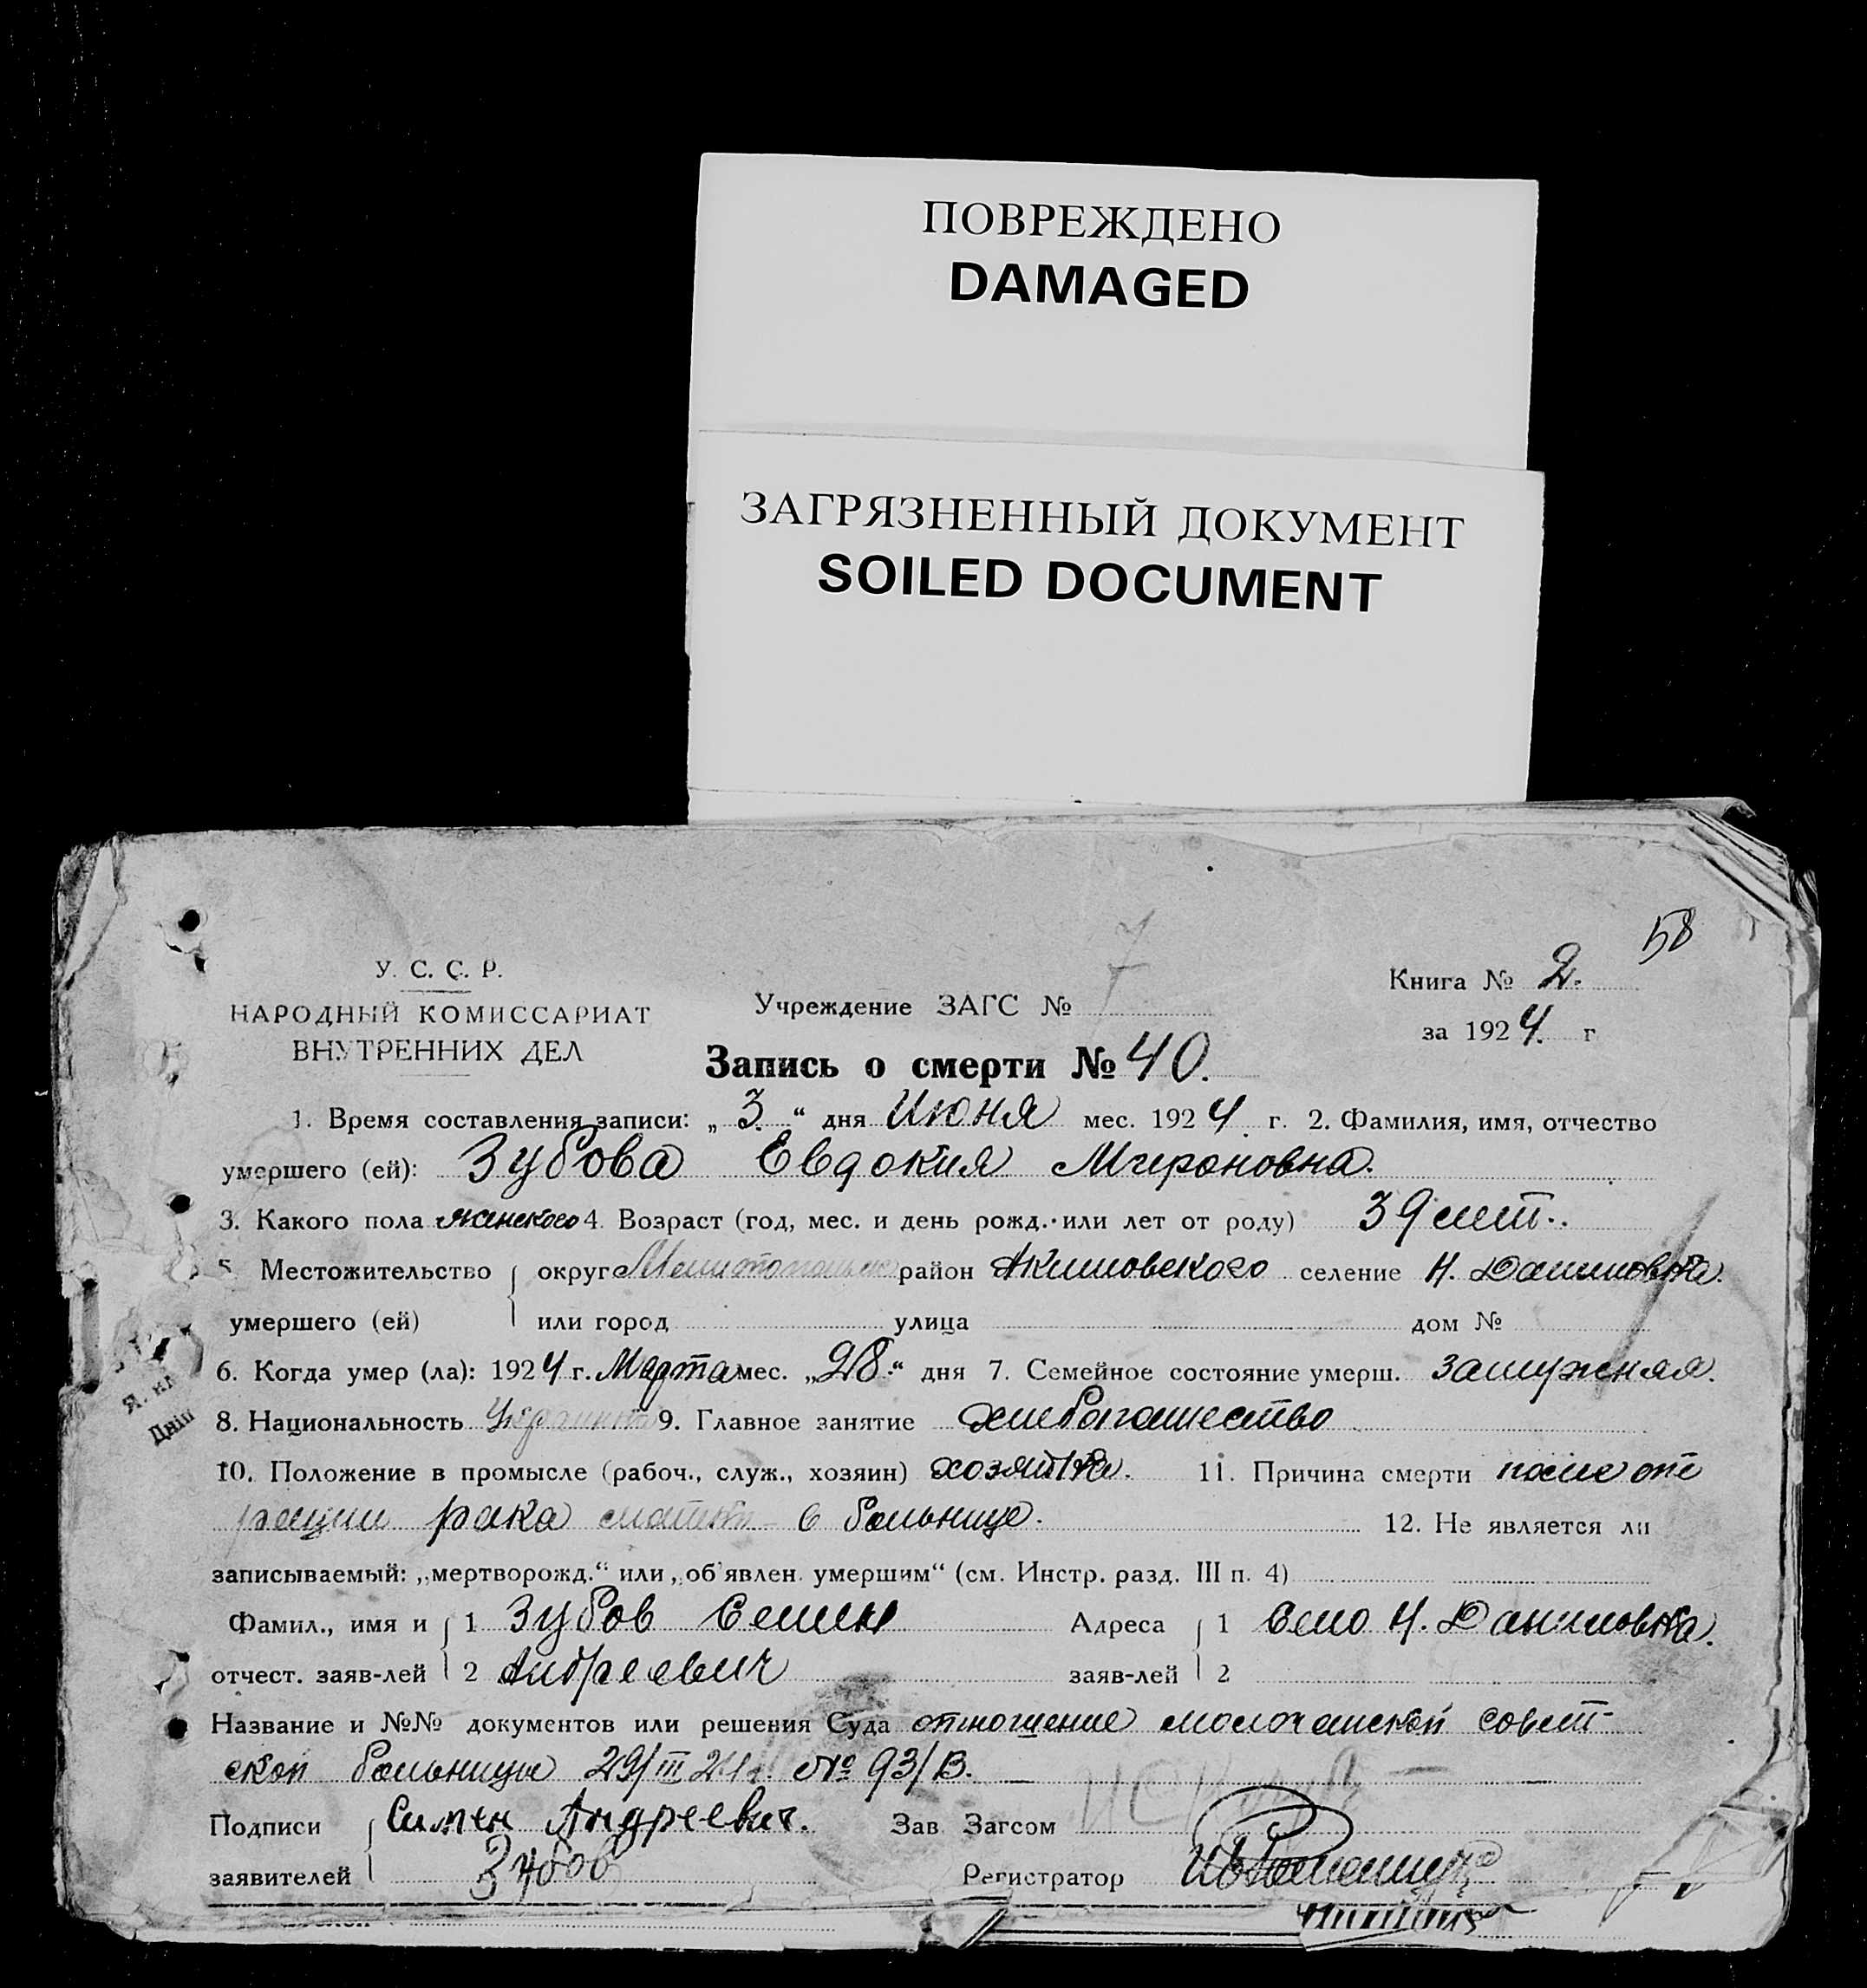 ПОВРЕЖДЕНО
DAMAGED
ЗАГРЯЗНЕННЫЙ ДОКУМЕНТ
SOILED DOCUMENT
58
У. С. С. Р.
НАРОДНЫЙ КОМИССАРИАТ
ВНУТРЕННИХ ДЕЛ
Учреждение ЗАГС № 7
Книга № 2.
за 1924. г
Запись о смерти № 40.
1. Время составления записи: „3.“ дня Июня мес. 1924. г. 2. Фамилия, имя, отчество
умершего (ей): Зубова Евдокия Мироновна.
3. Какого пола женского 4. Возраст (год, мес. и день рожд. или лет от роду) 39 лет.
5. Местожительство округ Мелитопольск район Акимовского селение Н. Даниловка.
умершего (ей) или город улица дом №
6. Когда умер (ла): 1924 г. Марта мес. „28.“ дня 7. Семейное состояние умерш. замужняя.
8. Национальность 9. Главное занятие хлебопашество
10. Положение в промысле (рабоч., служ., хозяин) хозяйка. 11. Причина смерти после опе
рации рака матки в больнице.
12. Не является ли
записываемый: „мертворожд.“ или „об'явлен. умершим“ (см. Инстр. разд. III п. 4)
Фамил., имя и 1 Зубов Семен Адреса 1 Село Н. Даниловка.
отчест. заяв-лей 2 Андреевич заяв-лей 2
Название и №№ документов или решения Суда отношение молочанской совет-
ской больницы 29/III 24г. № 93/В.
Подписи Симен Андреевич. Зав Загсом
заявителей Зубов Регистратор